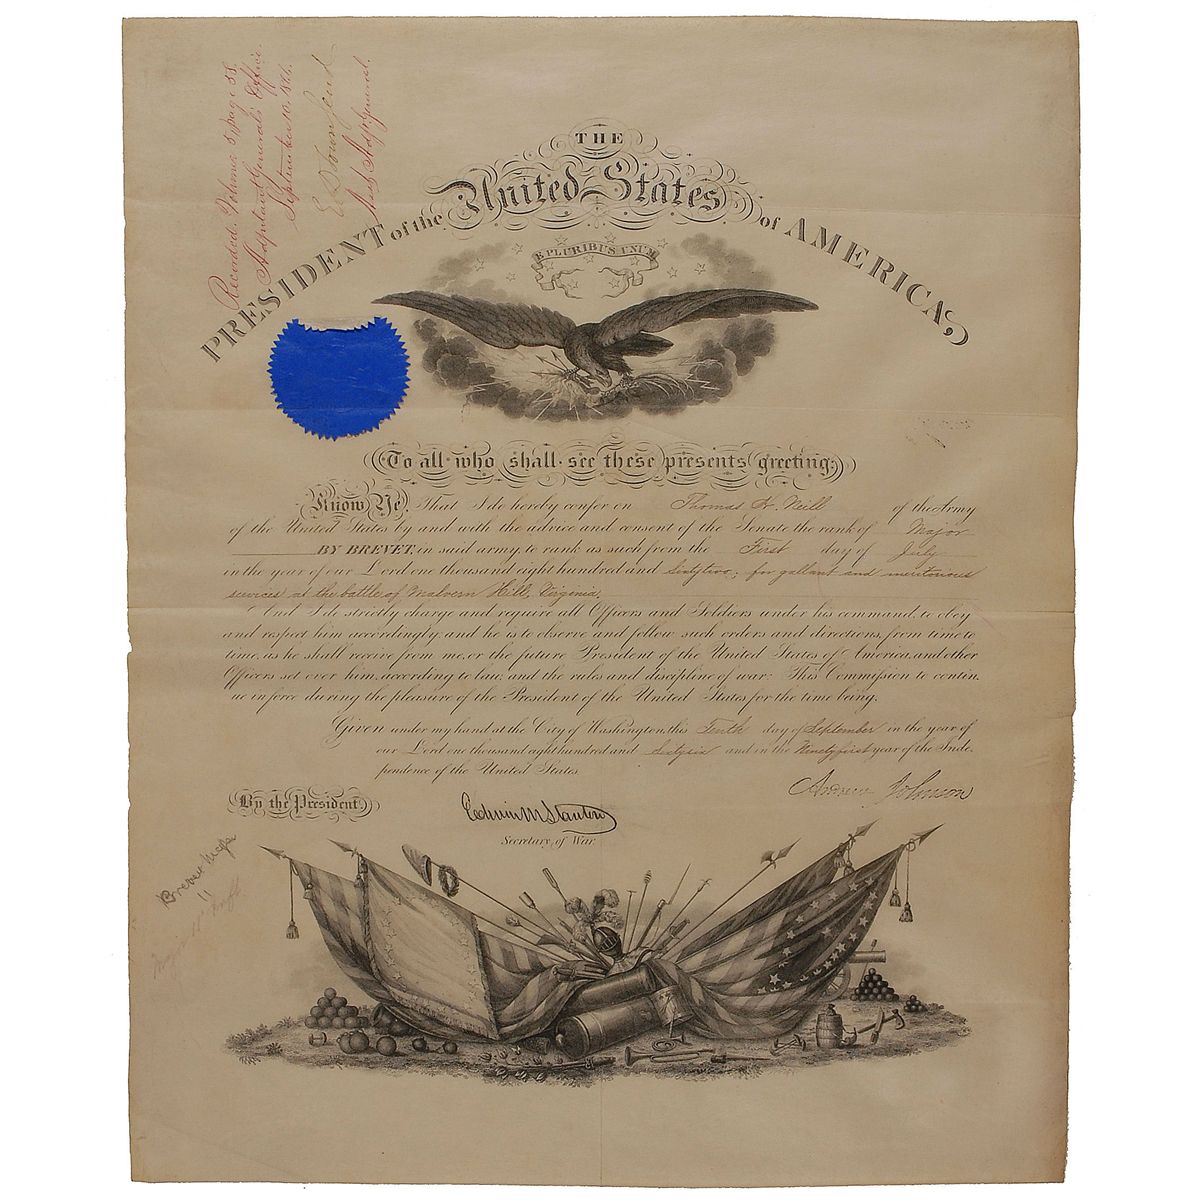 Recorded. Volume 5, Page 58.
Adjutant General's Office.
September 10, 1866.
E. D. Townsend
Asst. Adjt. General.
THE
PRESIDENT of the United States of AMERICA,
E PLURIBUS UNUM
To all who shall see these presents greeting:
Know Ye, That I do hereby confer on Thomas H. Neill of the Army
of the United States by and with the advice and consent of the Senate the rank of Major
BY BREVET, in said army, to rank as such from the First day of July
in the year of our Lord one thousand eight hundred and sixty two; for gallant and meritorious
services at the battle of Malvern Hill, Virginia.
And I do strictly charge and require all Officers and Soldiers under his command, to obey
and respect him accordingly: and he is to observe and follow such orders and directions, from time to
time, as he shall receive from me, or the future President of the United States of America, and other
Officers set over him, according to law, and the rules and discipline of war: This Commission to contin
ue in force during the pleasure of the President of the United States for the time being.
Given under my hand at the City of Washington, this Tenth day of September in the year of
our Lord one thousand eight hundred and sixty six and in the Ninety first year of the Inde
pendence of the United States.
Andrew Johnson
By the President,
Edwin M Stanton
Secretary of War.
Brevet Major